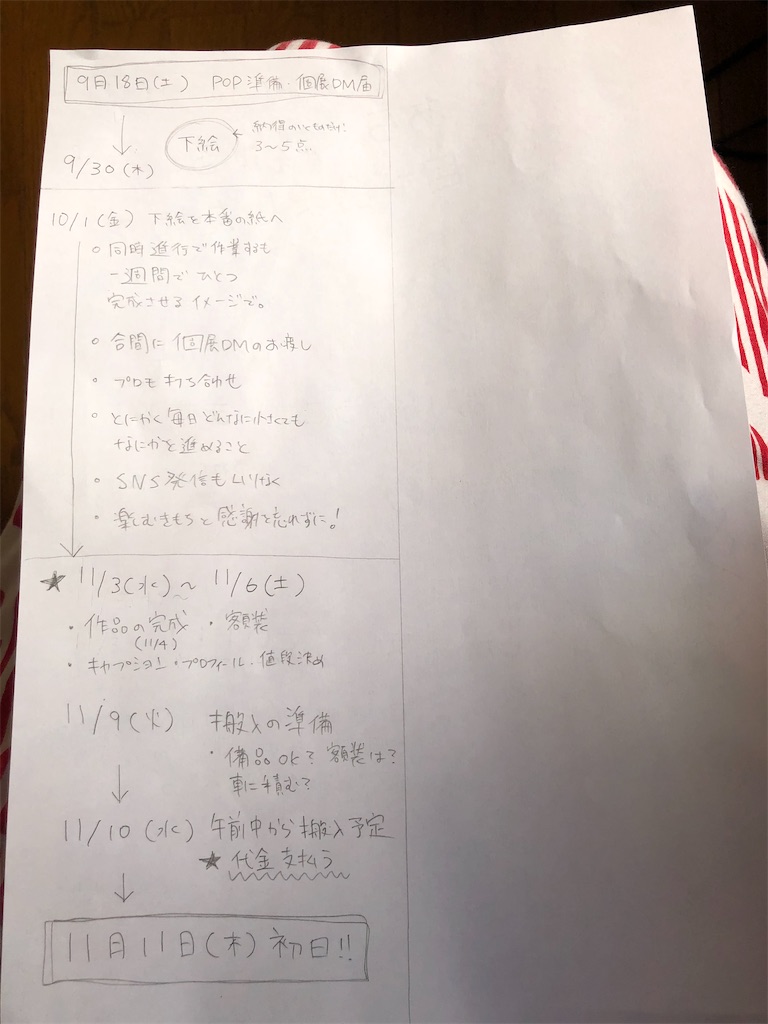 9月18日(土) POP準備・個展DM届
9/30(木)
下絵
納得のいくものだけ!
3〜5点
10/1(金) 下絵を本番の紙へ
○ 同時進行で作業するも
一週間でひとつ
完成させるイメージで。
○ 合間に個展DMのお渡し
・プロモ打ち合わせ
○ とにかく毎日どんなに小さくても
なにかを進めること
・SNS発信もムリなく
・楽しむきもちと感謝を忘れずに!
★ 11/3(水)〜 11/6(土)
・作品の完成 ・額装
(11/4)
・キャプション・プロフィール・値段決め
11/9(火) 搬入の準備
・備品OK? 額装は?
車に積む?
11/10(水) 午前中から搬入予定
★ 代金支払う
11月11日(木)初日!!